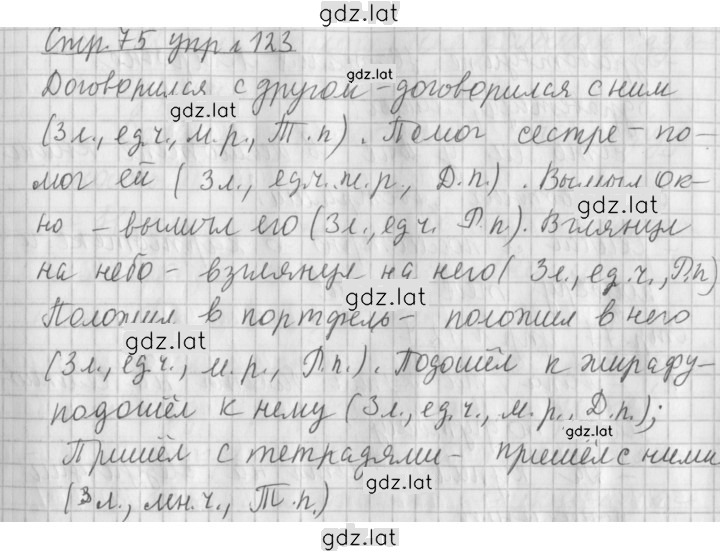 gdz.lat
Стр. 75 упр. 123
gdz.lat
Договорился с другой - договорился с ним
gdz.lat
(3 л., ед.ч., м.р., Т.п). Помог сестре - по-
мог ей (3 л., ед.ч. ж.р., Д.п.). Вымыл ок-
gdz.lat
но - вымыл его (3 л., ед.ч. В.п.). Взглянул
gdz.lat
на небо - взглянул на него (3 л., ед.ч., В.п)
gdz.lat
Положил в портфель - положил в него
gdz.lat
(3 л., ед.ч., м.р., В.п.). Подошёл к жирафу-
подошёл к нему (3 л., ед.ч., м.р., Д.п.);
gdz.lat
Пришёл с тетрадями - пришёл с ними
gdz.lat
(3 л., мн.ч., Т.п.)
gdz.lat